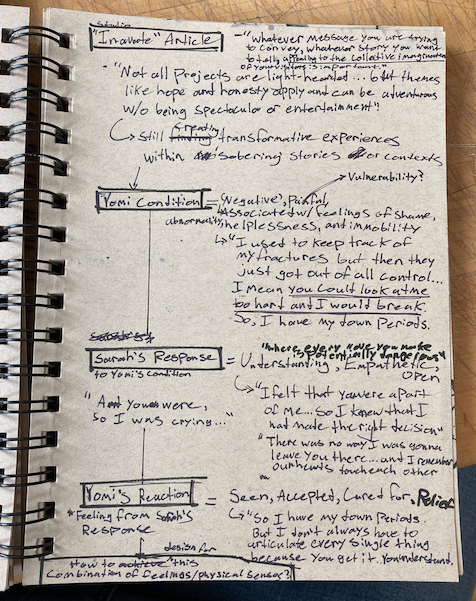 studio
"Inavate" Article
- "Whatever message you are trying
to convey, whatever story you want
to tell, appealing to the collective imagination
of your visitors is important"
- "Not all Projects are light-hearted... but themes
like hope and honesty apply and can be adventurous
w/o being spectacular or entertainment"
Creating
Still finding transformative experiences
within sobering stories or contexts
Vulnerability?
Yomi Condition = Negative, Painful,
abnormality, Associated w/ feelings of shame,
helplessness, and immobility
"I used to keep track of
my fractures but then they
just got out of all control...
I mean you could look at me
too hard and I would break.
So, I have my down periods.
"where every move you make
is potentially dangerous"
Sarah's Response = Understanding, Empathetic,
to Yomi's condition
Open
"And you were,
so I was crying..."
"I felt that you were a part
of me... so I knew that I
had made the right decision"
"There was no way I was gonna
leave you there... and I remember
our hearts touch each other
"
Yomi's Reaction = Seen, Accepted, Cared for, Relief
*Feeling from Sarah's
Response
"So I have my down periods.
But I don't always have to
articulate every single thing
because you get it. You understand.
design for
How to achieve this
Combination of feelings/physical senses?